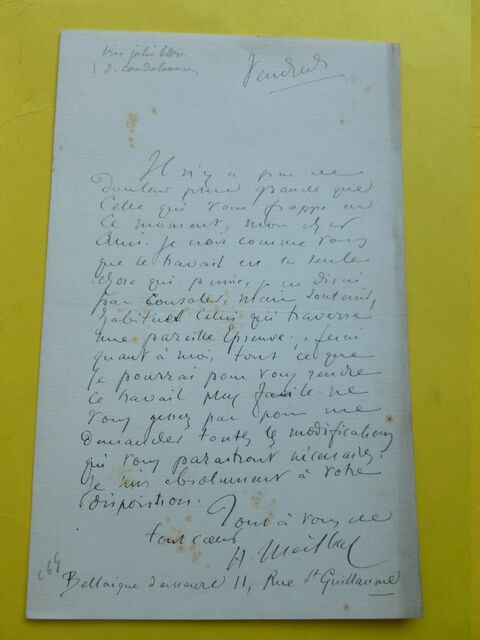 très jolie lettre
de condoléances
Vendredi
Il n'y a pas de
douleur plus grande que
celle qui vous frappe en
ce moment, mon cher
Ami. Je crois comme vous
que le travail est la seule
chose qui puisse, je ne dirai
pas consoler, mais soutenir,
celui qui traverse
une pareille Epreuve. Je ferai
quant à moi, tout ce que
je pourrai pour vous rendre
ce travail plus facile. ne
vous gênez pas pour me
demander toutes les modifications
qui vous paraitront nécessaires,
je suis absolument à votre
disposition.
Tout à vous de
tout coeur
H. Meilhac
Bellaigue demeure 11, Rue St Guillaume